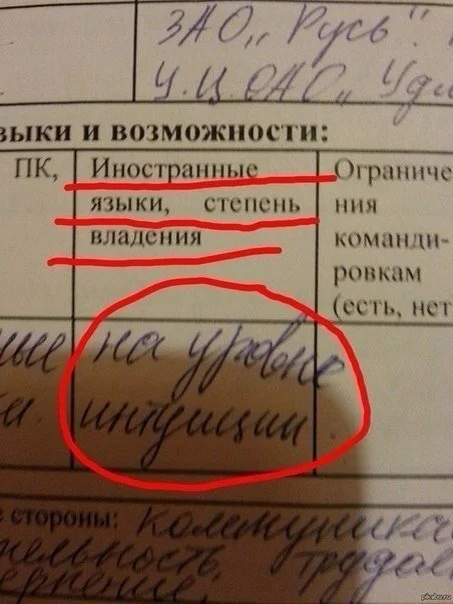 ЗАО „Русь".
У.Ц. ОАО „Удм
зыки и возможности:
ПК, Иностранные Ограниче
языки, степень ния
владения команди-
ровкам
(есть, нет
ные на уровне
интуиции.
е стороны: коммуника
тельность, трудол
pikabu.ru